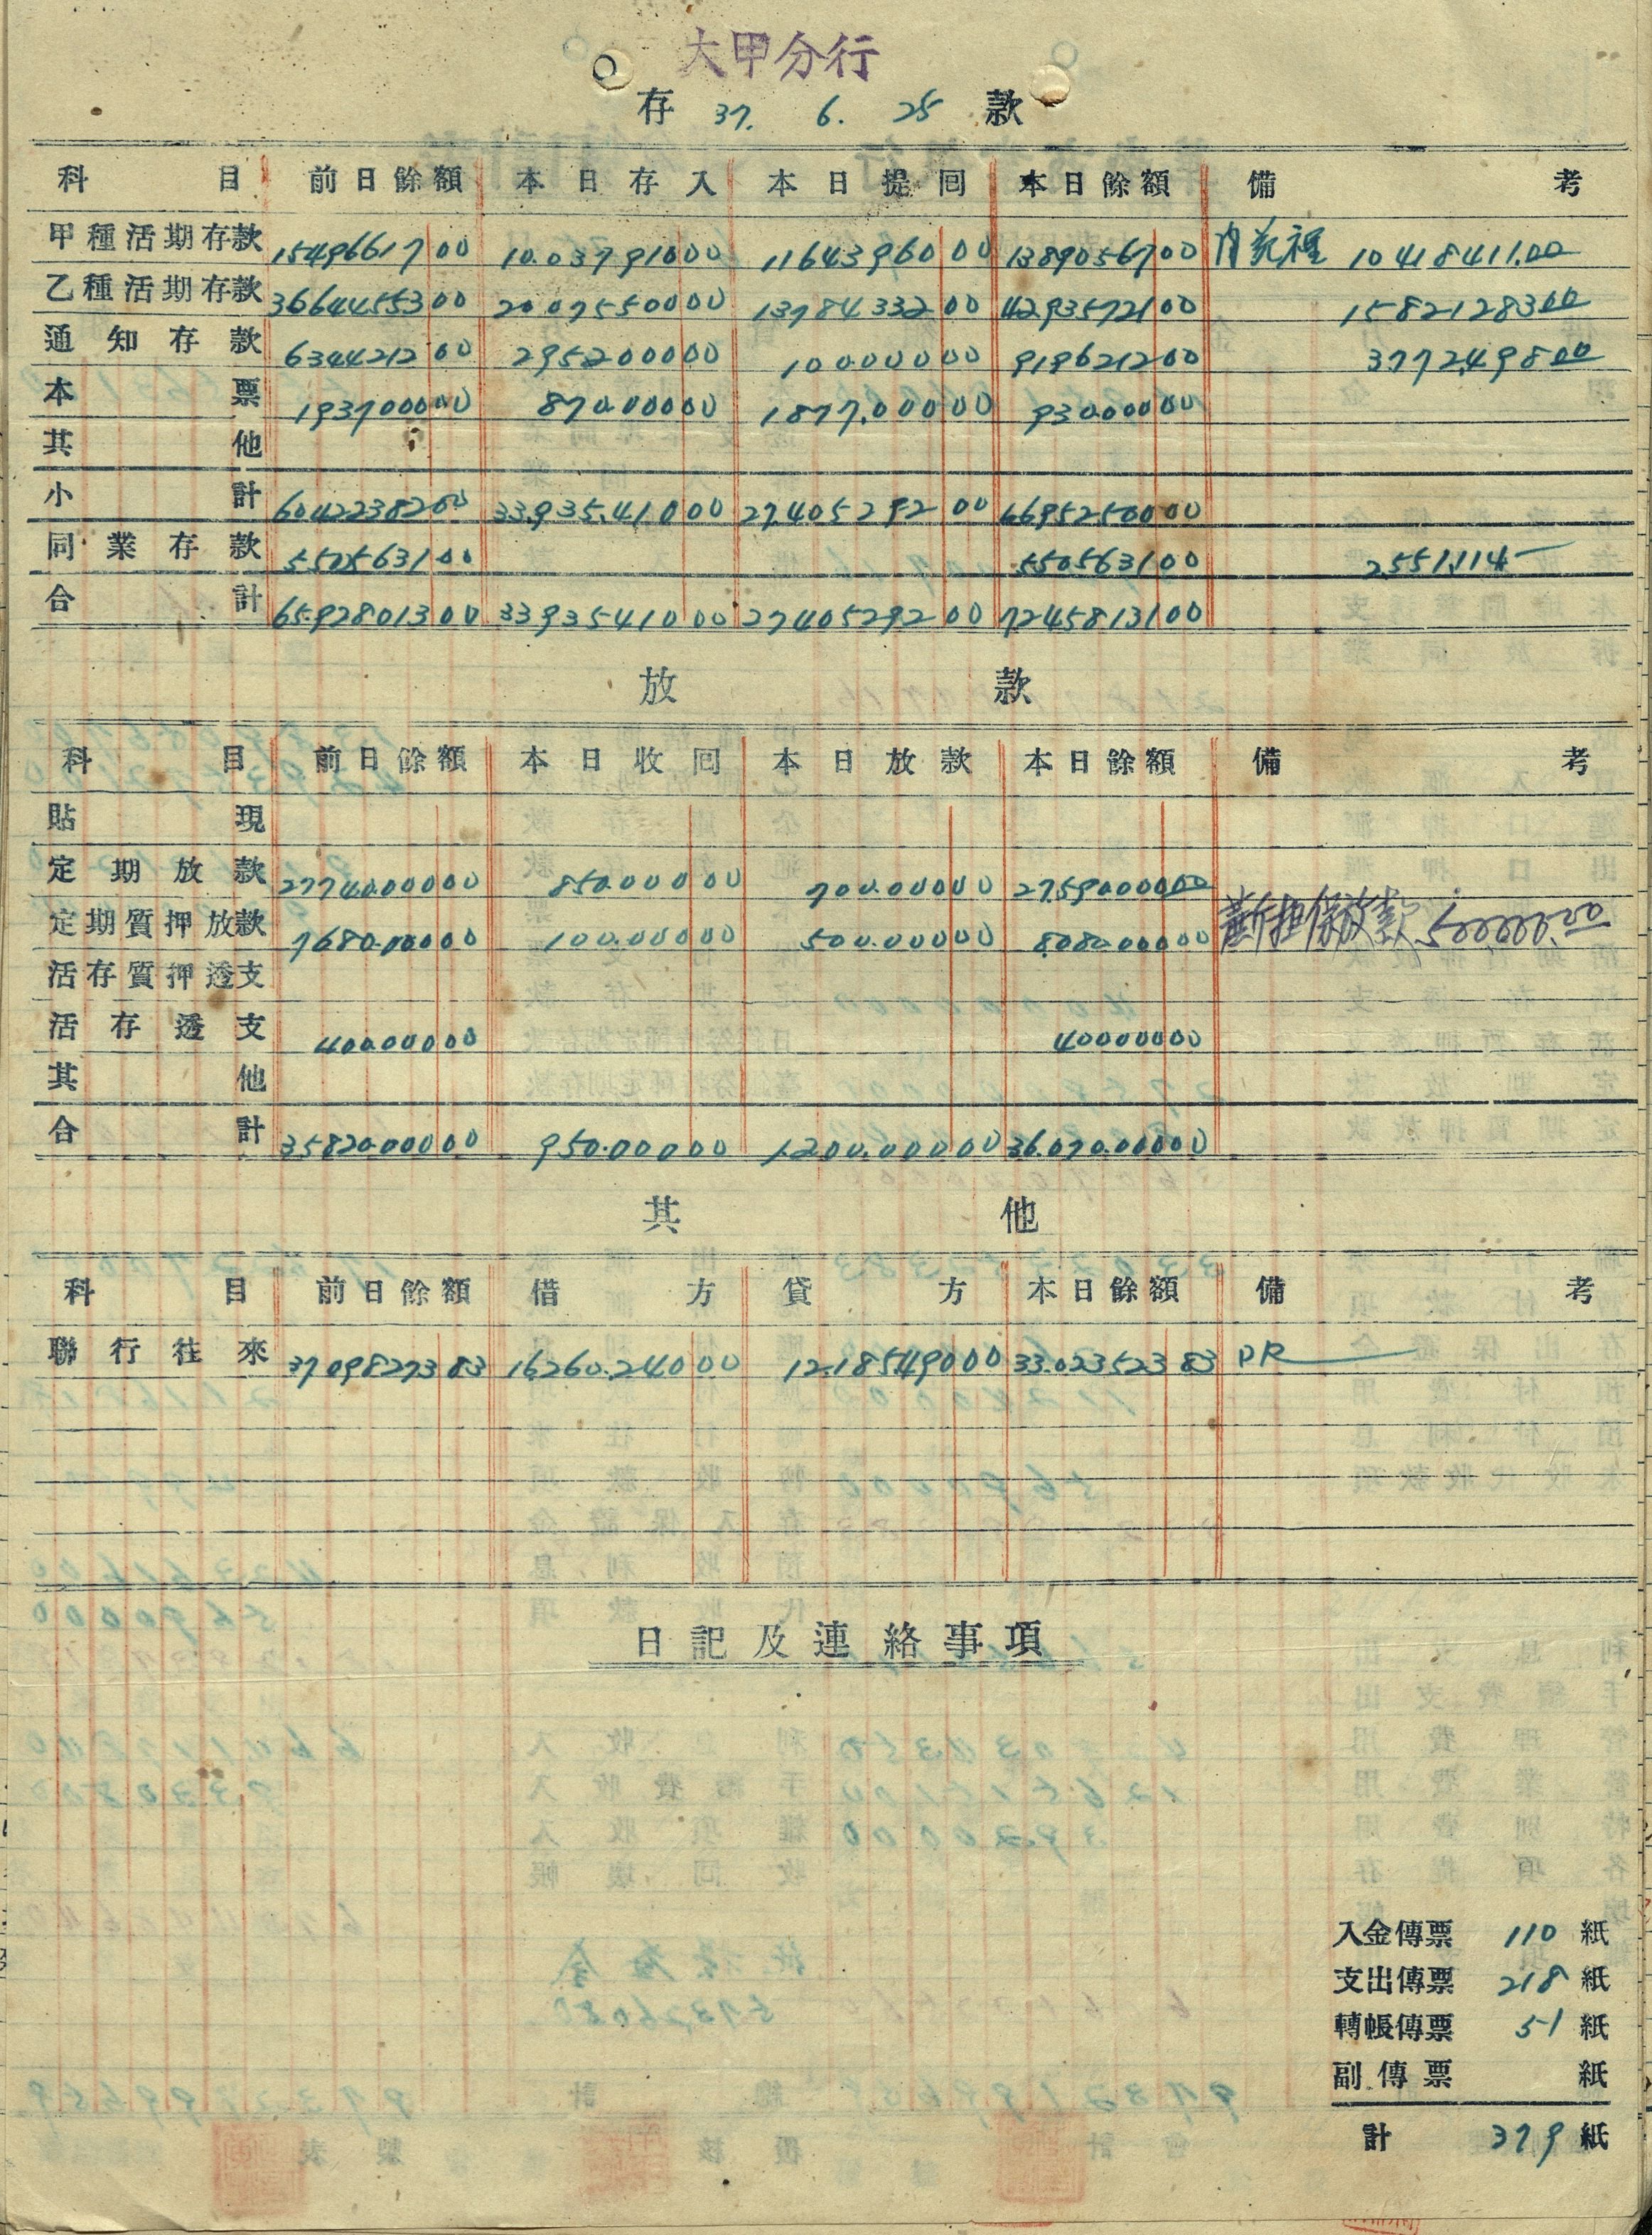 大甲分行
存 37. 6. 25 款
科目 前日餘額 本日存入 本日提囘 本日餘額 備考
甲種活期存款 15496617 00 10.037910 00 11643960 00 13890567 00 内苑裡 10418411.00
乙種活期存款 36644553 00 20075500 00 13784332 00 42935721 00 15821283 00
通知存款 6344212 00 2952000 00 100000 00 9196212 00 3772498 00
本票 1937000 00 870.000 00 1877.000 00 930000 00
其他
小計 60422382 00 33.935.410 00 27.405292 00 66952500 00
同業存款 5505631 00 5505631 00 2551114-
合計 65928013 00 33935410 00 27405292 00 72458131 00
放款
科目 前日餘額 本日收囘 本日放款 本日餘額 備考
貼現
定期放款 27740000 00 850.000 00 700.000 00 27590000 00
定期質押放款 7680.000 00 100.000 00 500.000 00 8080.000 00 新担保放款 500.000.00
活存質押透支
活存透支 400.000 00 400000 00
其他
合計 35820.000 00 950.000 00 1200.000 00 36.070.000 00
其他
科目 前日餘額 借方 貸方 本日餘額 備考
聯行往來 37098273 83 16260.240 00 12.185490 00 33.023523 83 DR
日記及連絡事項
入金傳票 110 紙
支出傳票 218 紙
轉帳傳票 51 紙
副傳票 紙
計 379 紙